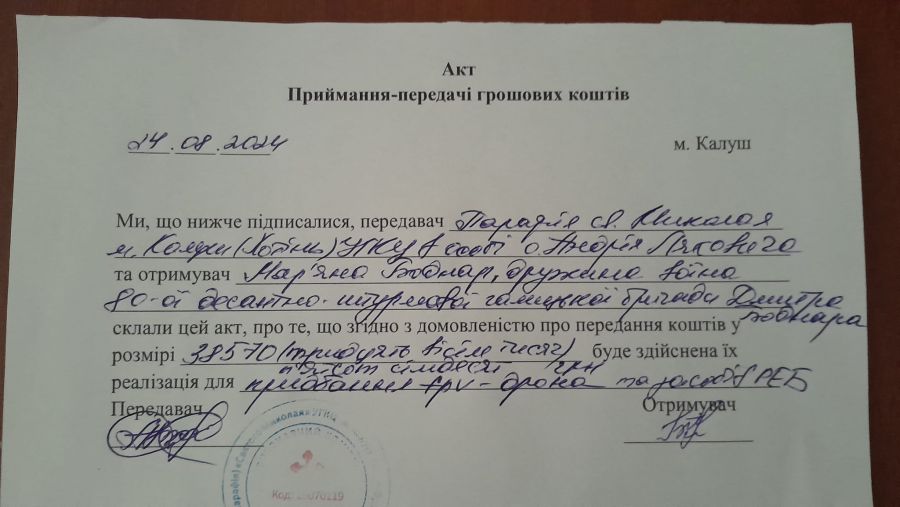 Акт
Приймання-передачі грошових коштів
24.08.2024 м. Калуш
Ми, що нижче підписалися, передавач Парафія св. Миколая
м. Калуш (Хотінь) УГКЦ в особі о. Андрія Ляховича
та отримувач Мар'яна Боднар, дружина воїна
80-ої десантно-штурмової галицької бригади Дмитра
Боднара
склали цей акт, про те, що згідно з домовленістю про передання коштів у
розмірі 38570 (тридцять вісім тисяч буде здійснена їх
п'ятсот сімдесят грн
реалізація для придбання fpv-дрона та засобів РЕБ
Передавач Отримувач
Святого Миколая» УГКЦ
Код: